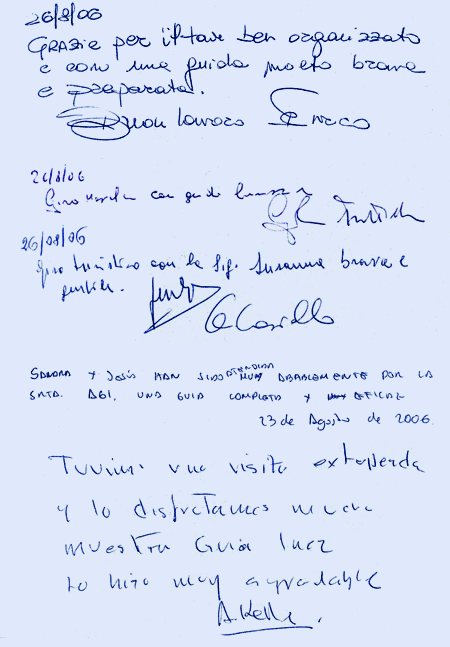 26/8/06
GRAZIE per il tour ben organizzato
e con una guida molto brava
e preparata.
Buon lavoro Enrico
26/8/06
con guida
26/08/06
giro turistico con la Sig. Susanna brava e
gentile.
SANDRA Y JESÚS HAN SIDO ATENDIDA MUY AMABLEMENTE POR LA
SRTA. AGI, UNA GUIA COMPLETA Y EFICAZ
23 de Agosto de 2006.
Tuvimos una visita extupenda
y lo disfrutamos mucho
nuestra Guia Inez
lo hizo muy agradable